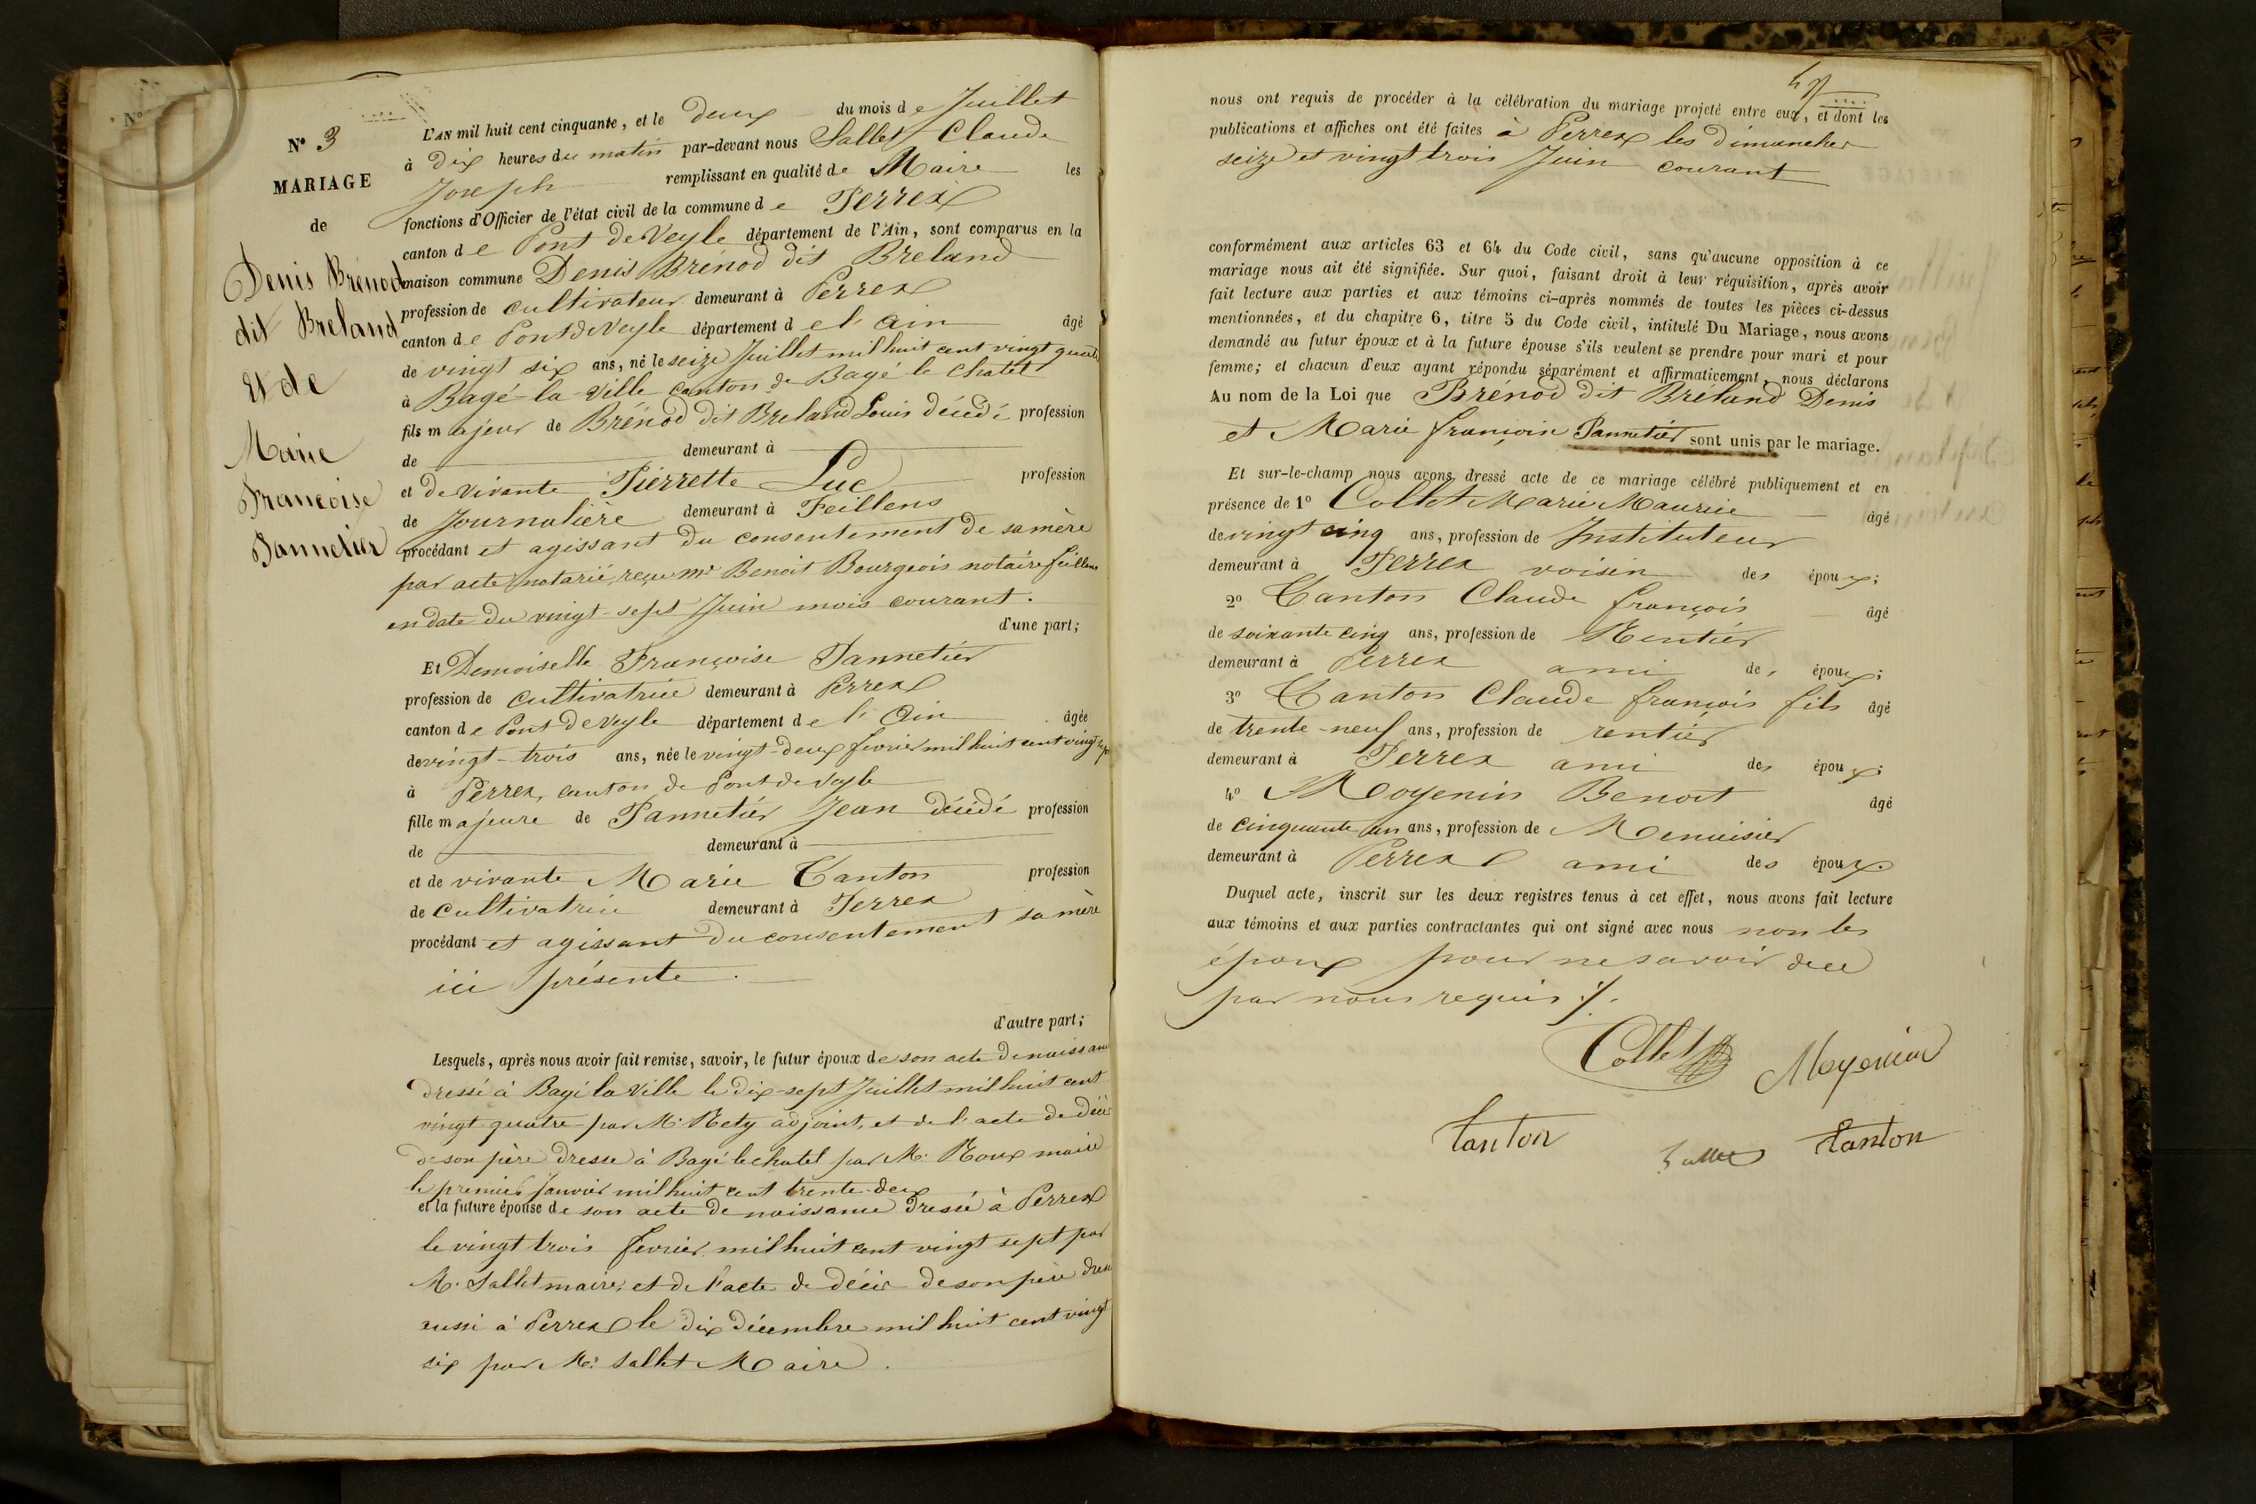 N° 3
MARIAGE
de
Denis Brénod
dit Breland
et de
Marie
Françoise
Pannetier
L'AN mil huit cent cinquante, et le deux du mois de Juillet
à dix heures du matin par-devant nous Sallet Claude
Joseph remplissant en qualité de Maire les
fonctions d'Officier de l'état civil de la commune de Perrex
canton de Pont de Veyle département de l'Ain, sont comparus en la
maison commune Denis Brénod dit Breland
profession de cultivateur demeurant à Perrex
canton de Pont de Veyle département de l'Ain âgé
de vingt six ans, né le seize Juillet mil huit cent vingt quatre
à Bagé-la-Ville canton de Bagé le Chatel
fils majeur de Brénod dit Breland Louis décédé profession
de demeurant à
et de vivante Pierrette Luc profession
de Journalière demeurant à Feillens
procédant et agissant du consentement de sa mère
par acte notarié, reçu Mr Benoit Bourgeois notaire Feillens
en date du vingt-sept Juin mois courant.
d'une part;
Et Demoiselle Françoise Pannetier
profession de cultivatrice demeurant à Perrex
canton de Pont de Veyle département de l'Ain âgée
de vingt-trois ans, née le vingt-deux fevrier mil huit cent vingt sept
à Perrex, canton de Pont de Veyle
fille majeure de Pannetier Jean décédé profession
de demeurant à
et de vivante Marie Tanton profession
de cultivatrice demeurant à Perrex
procédant et agissant du consentement sa mère
ici présente.
d'autre part;
Lesquels, après nous avoir fait remise, savoir, le futur époux de son acte de naissance
dressé à Bagé la Ville le dix-sept Juillet mil huit cent
vingt quatre par Mr Rety adjoint, et de l'acte de décès
de son père dressé à Bagé le chatel par Mr Roux maire
le premier Janvier mil huit cent trente-deux
et la future épouse de son acte de naissance dressé à Perrex
le vingt trois fevrier mil huit cent vingt sept par
Mr Sallet maire, et de l'acte de décès de son père dressé
aussi à Perrex le dix décembre mil huit cent vingt
six par Mr Sallet Maire.
nous ont requis de procéder à la célébration du mariage projeté entre eux, et dont les
publications et affiches ont été faites à Perrex les dimanches
seize et vingt trois Juin courant
conformément aux articles 63 et 64 du Code civil, sans qu'aucune opposition à ce
mariage nous ait été signifiée. Sur quoi, faisant droit à leur réquisition, après avoir
fait lecture aux parties et aux témoins ci-après nommés de toutes les pièces ci-dessus
mentionnées, et du chapitre 6, titre 5 du Code civil, intitulé Du Mariage, nous avons
demandé au futur époux et à la future épouse s'ils veulent se prendre pour mari et pour
femme; et chacun d'eux ayant répondu séparément et affirmativement, nous déclarons
Au nom de la Loi que Brénod dit Bréland Denis
et Marie françoise Pannetier sont unis par le mariage.
Et sur-le-champ nous avons dressé acte de ce mariage célébré publiquement et en
présence de 1° Collet Marie Maurice âgé
de vingt cinq ans, profession de Instituteur
demeurant à Perrex voisin des époux;
2° Tanton Claude françois âgé
de soixante cinq ans, profession de Rentier
demeurant à Perrex ami des époux;
3° Tanton Claude françois fils âgé
de trente-neuf ans, profession de rentier
demeurant à Perrex ami des époux;
4° Moyenin Benoit âgé
de cinquante un ans, profession de Menuisier
demeurant à Perrex ami des époux.
Duquel acte, inscrit sur les deux registres tenus à cet effet, nous avons fait lecture
aux témoins et aux parties contractantes qui ont signé avec nous non les
époux pour ne savoir de ce
par nous requis ./.
Collet Moyenin
Tanton Sallet Tanton